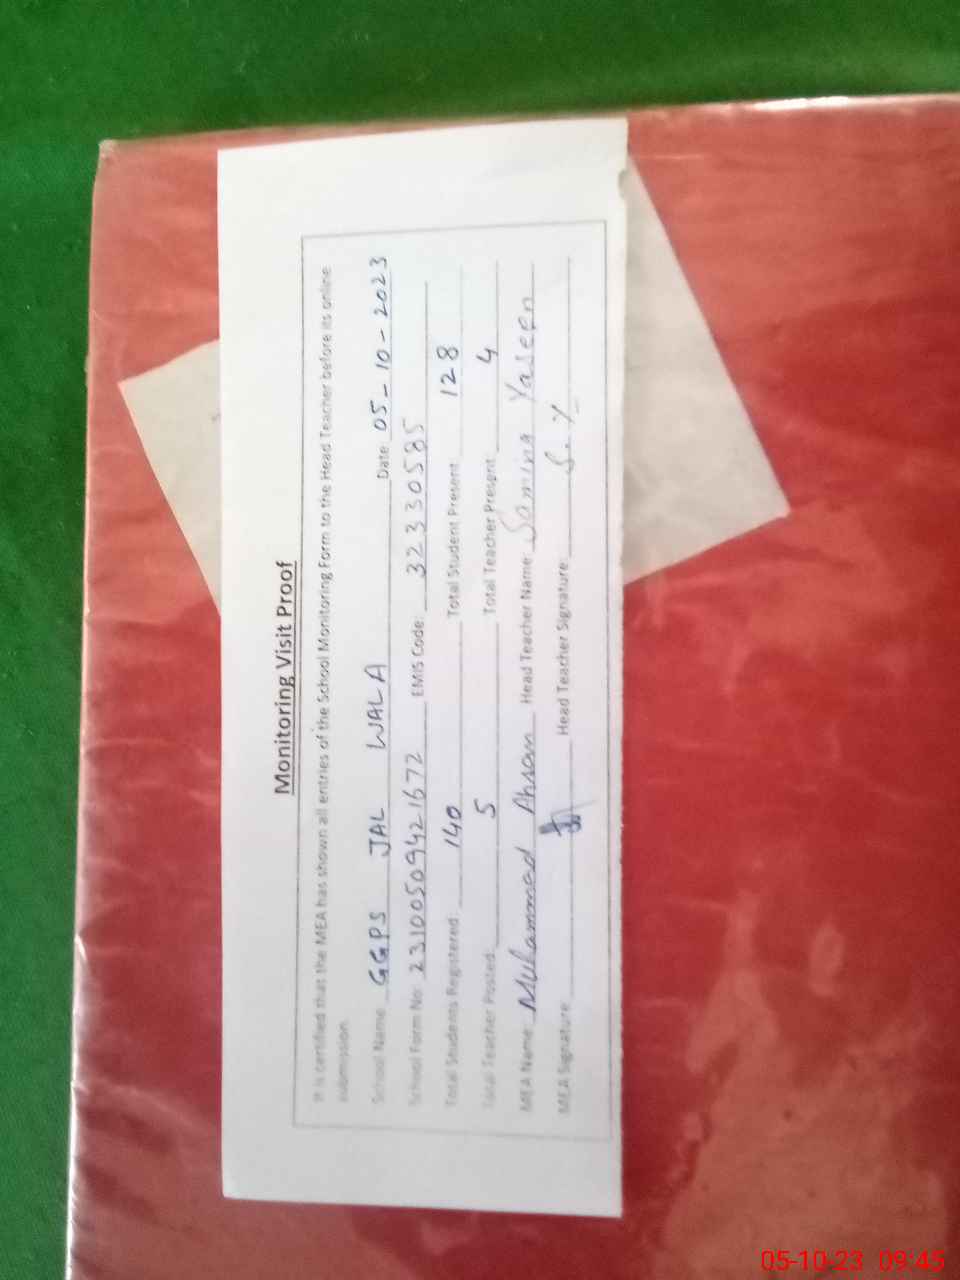 Monitoring Visit Proof
It is certified that the MEA has shown all entries of the School Monitoring Form to the Head Teacher before its online
submission.
School Name GGPS JAL WALA Date 05-10-2023
School Form No: 23100509421672 EMIS Code: 32330585
Total Students Registered: 140 Total Student Present: 128
Total Teacher Posted: 5 Total Teacher Present: 4
MEA Name: Muhammad Ahsan Head Teacher Name: Samina Yaseen
MEA Signature Head Teacher Signature: S.Y
05-10-23 09:45